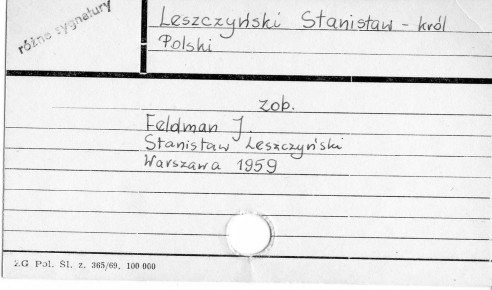 różne sygnatury
Leszczyński Stanisław - król
Polski
zob.
Feldman J.
Stanisław Leszczyński
Warszawa 1959
ZG Pol. Śl. z. 365/69. 100 000